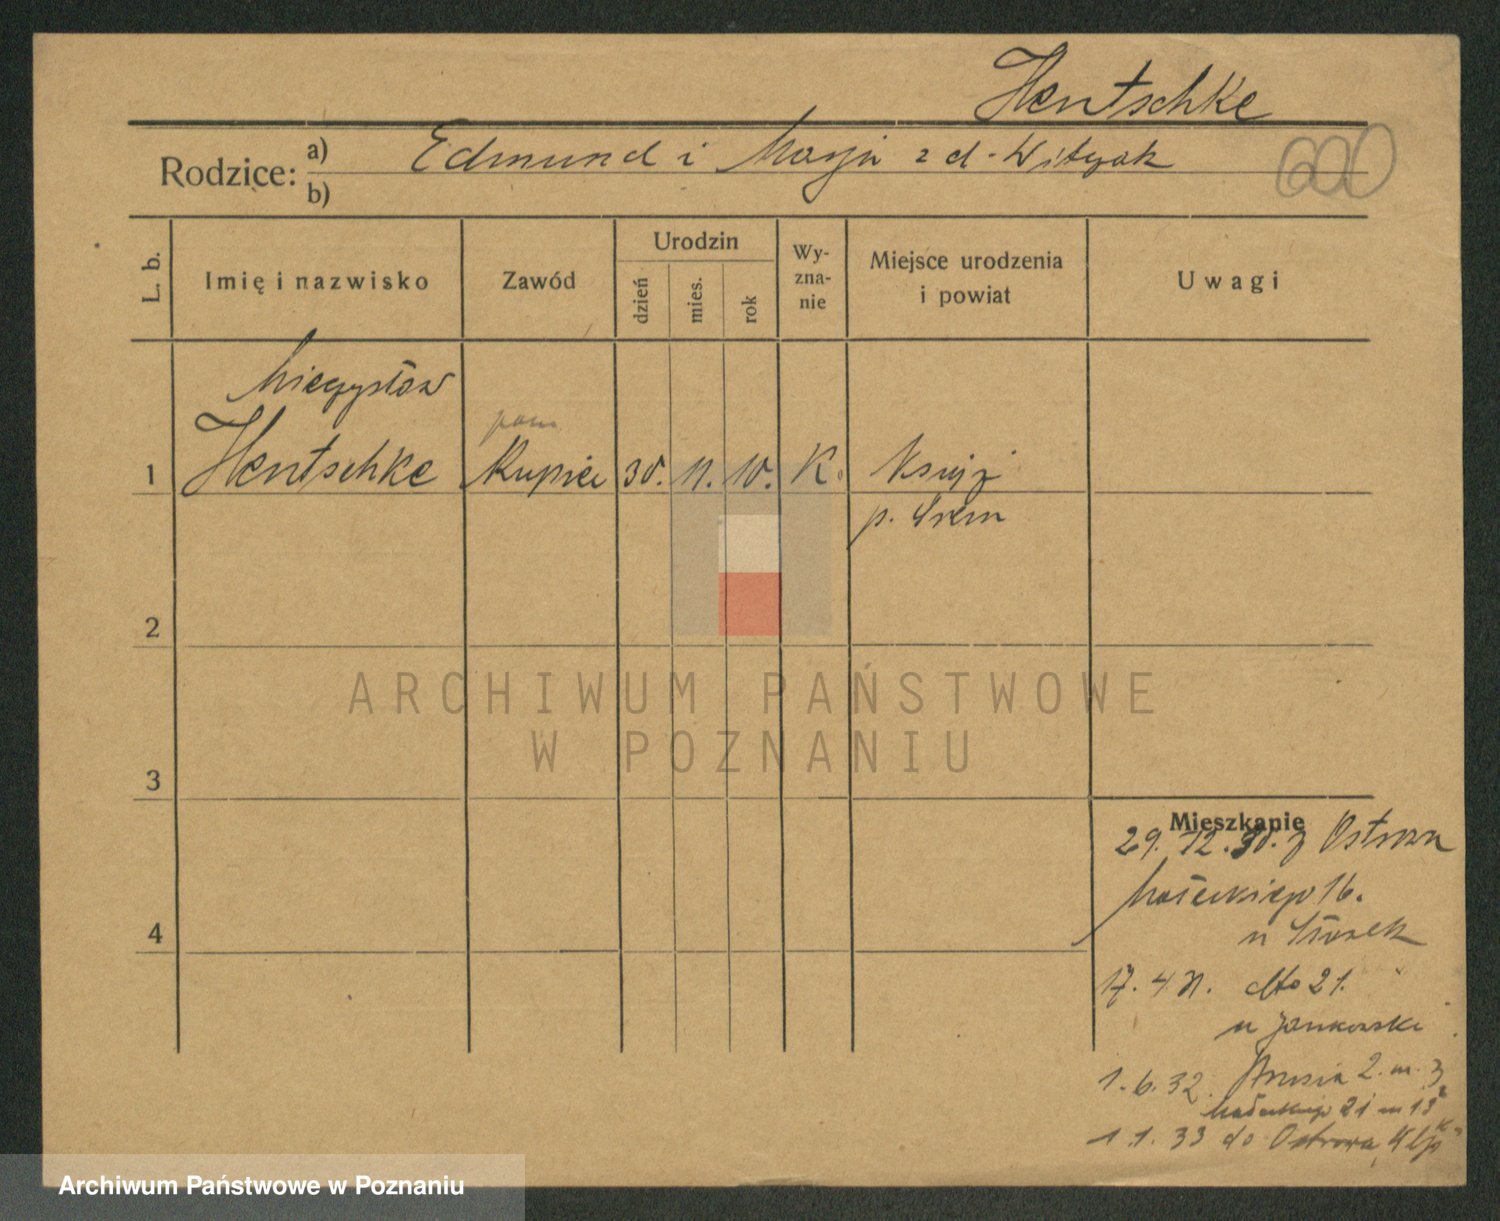 Hentschke
Rodzice: a) Edmund i Marja z d. Witczak
b)
600
L. b.
Imię i nazwisko
Zawód
Urodzin
dzień
mies.
rok
Wy-
zna-
nie
Miejsce urodzenia
i powiat
Uwagi
Mieczysław
pom
1 Hentschke Kupiec 30. 11. 10. K. Książ
p. Śrem
2
3
4
Mieszkanie
29. 12. 30. z Ostrowa
Małeckiego 16.
17. 4 31. dto 21.
u Jankowski
1. 6. 32. 2. m. 3
Małeckiego 21 m 13
1. 1. 33 do Ostrowa
ARCHIWUM PAŃSTWOWE
W POZNANIU
Archiwum Państwowe w Poznaniu